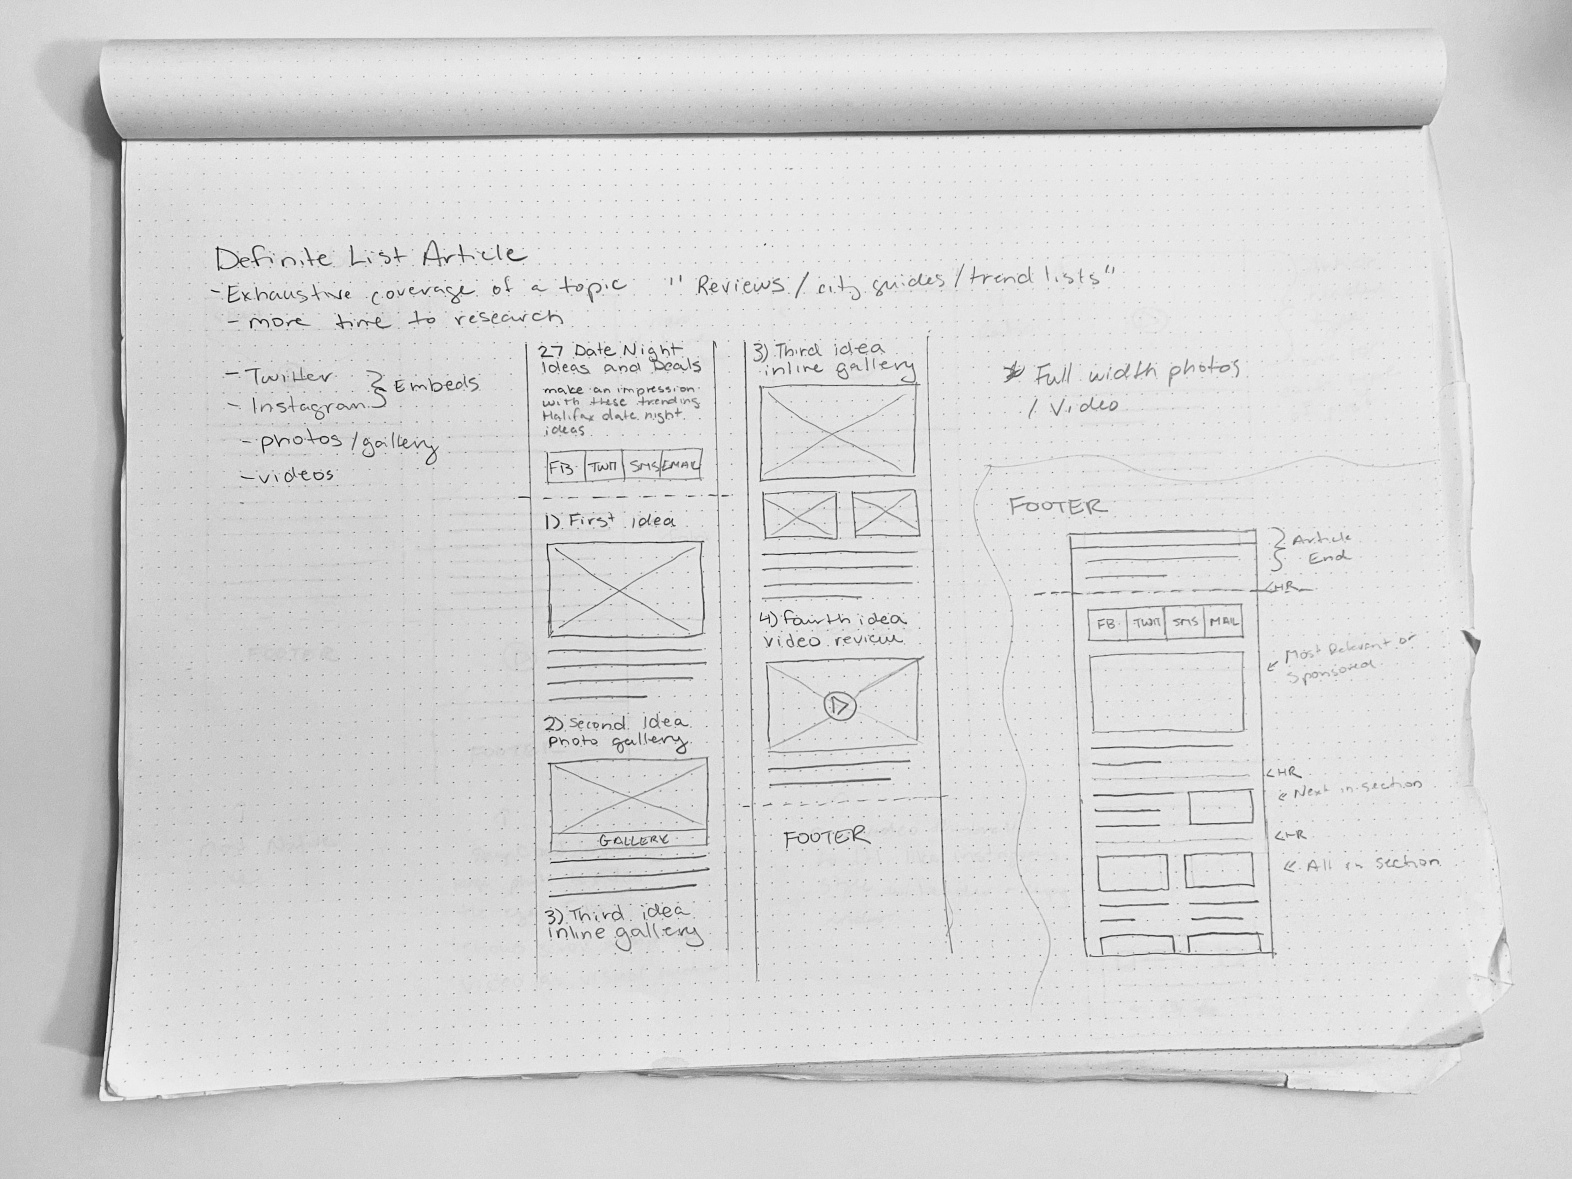 Definite List Article
- Exhaustive coverage of a topic " Reviews / city guides / trend lists"
- more time to research
- Twitter
- Instagram
} Embeds
- photos / gallery
- videos
27 Date Night
Ideas and Deals
make an impression
with these trending
Halifax date night
ideas
FB TWIT SMS EMAIL
1) First idea
2) Second Idea
photo gallery
GALLERY
3) Third idea
inline gallery
3) Third idea
inline gallery
4) Fourth idea
video review
FOOTER
* Full width photos
/ Video
FOOTER
} Article
End
<HR
FB TWIT SMS MAIL
← Most Relevant or
Sponsored
<HR
← Next in section
<HR
← All in section